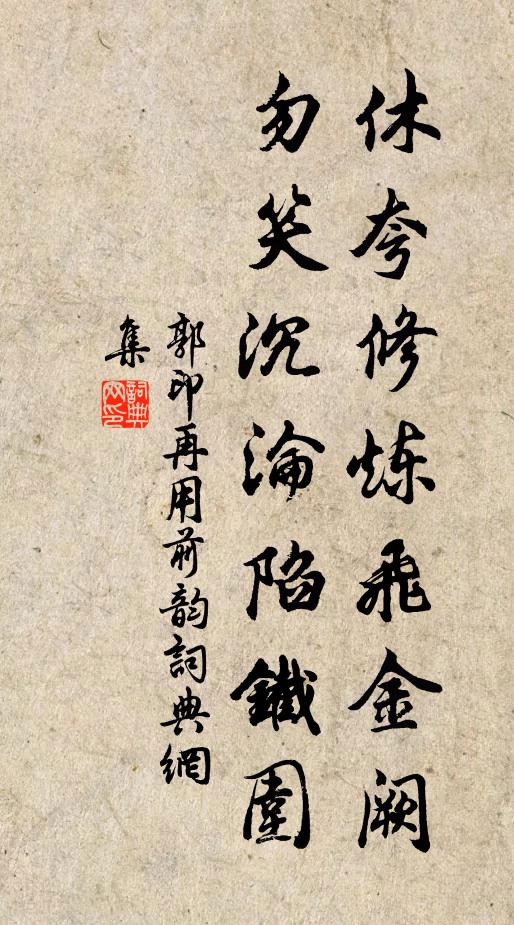 休夸修炼飛金阙
勿笑沉淪陷鐵圍
郭印再用前韵詞典網
集
詞典
网印